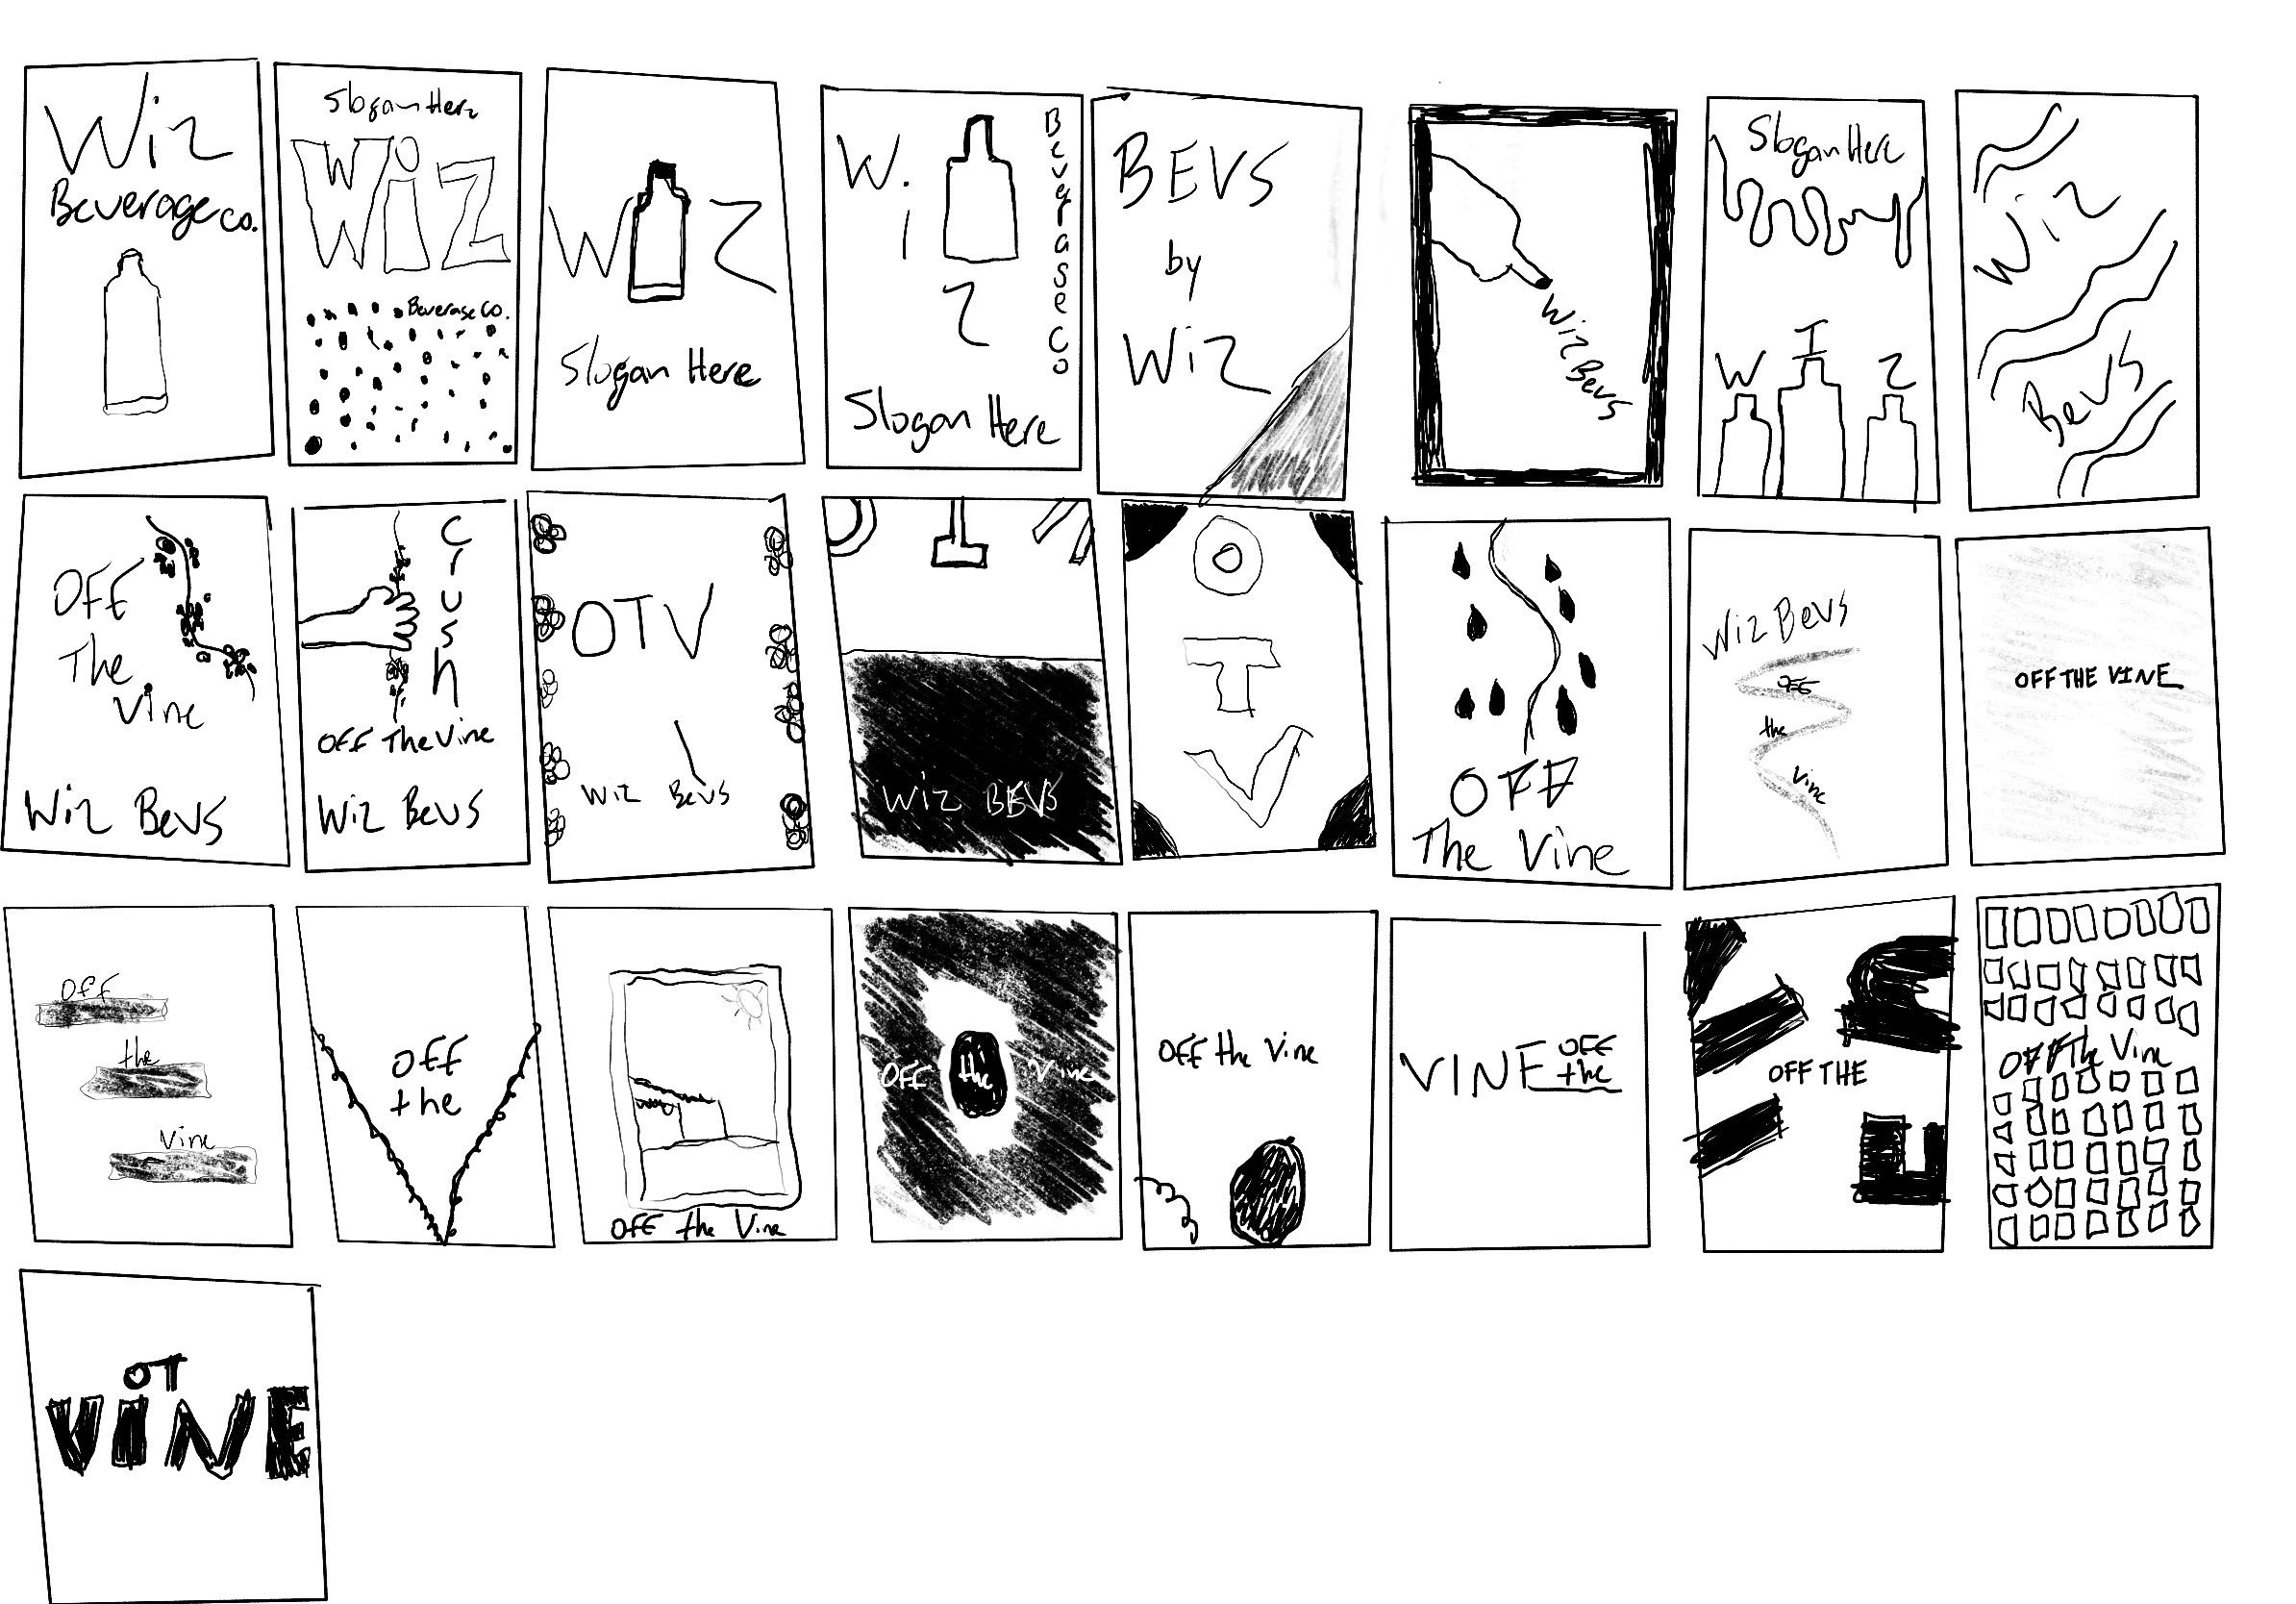 Wiz
Beverage co.
Slogan Here
WiZ
Beverage Co.
W Z
Slogan Here
W.
i
Z
Beverage Co
Slogan Here
BEVS
by
WiZ
Wiz Bevs
Slogan Here
W I Z
Wiz
BevS
OFF
The
Vine
Wiz Bevs
Crush
OFF The Vine
Wiz Bevs
OTV
Wiz Bevs
Wiz BEVS
O
T
V
OFF
The Vine
Wiz Bevs
OFF
the
Vine
OFF THE VINE
Off
the
Vine
Off
the
Off the Vine
OFF the Vine
Off the Vine
VINE OFF
the
OFF THE
OFF The Vine
OT
ViNE